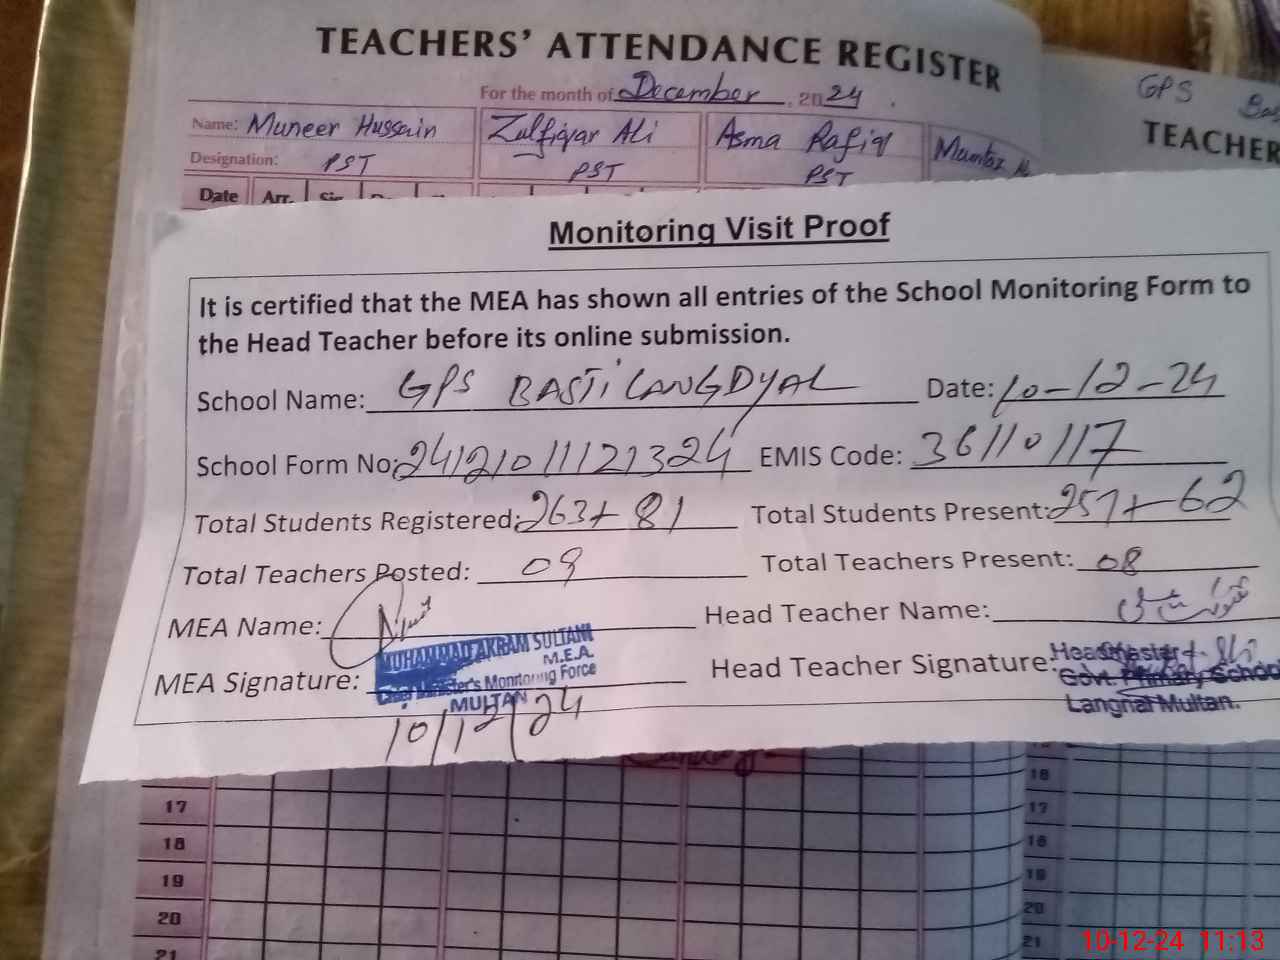 TEACHERS' ATTENDANCE REGISTER
For the month of December, 2024.
GPS
TEACHER
Name: Muneer Hussain
Zulfiqar Ali
Asma Rafiq
Mumtaz
Designation: PST
PST
PST
Date Arr.
Monitoring Visit Proof
It is certified that the MEA has shown all entries of the School Monitoring Form to
the Head Teacher before its online submission.
School Name: GPS BASTi LANGDYAL Date: 10-12-24
School Form No: 24121011121324 EMIS Code: 36110117
Total Students Registered: 263+81 Total Students Present: 257+62
Total Teachers Posted: 09 Total Teachers Present: 08
MEA Name: Head Teacher Name:
MEA Signature: Head Teacher Signature:
MUHAMMAD AKRAM SULTANI
M.E.A.
Chief Minister's Monitoring Force
MULTAN
10/12/24
Headmaster
Govt. Primary School
Langrial Multan.
17
18
19
20
21
16
17
18
19
20
21
10-12-24 11:13